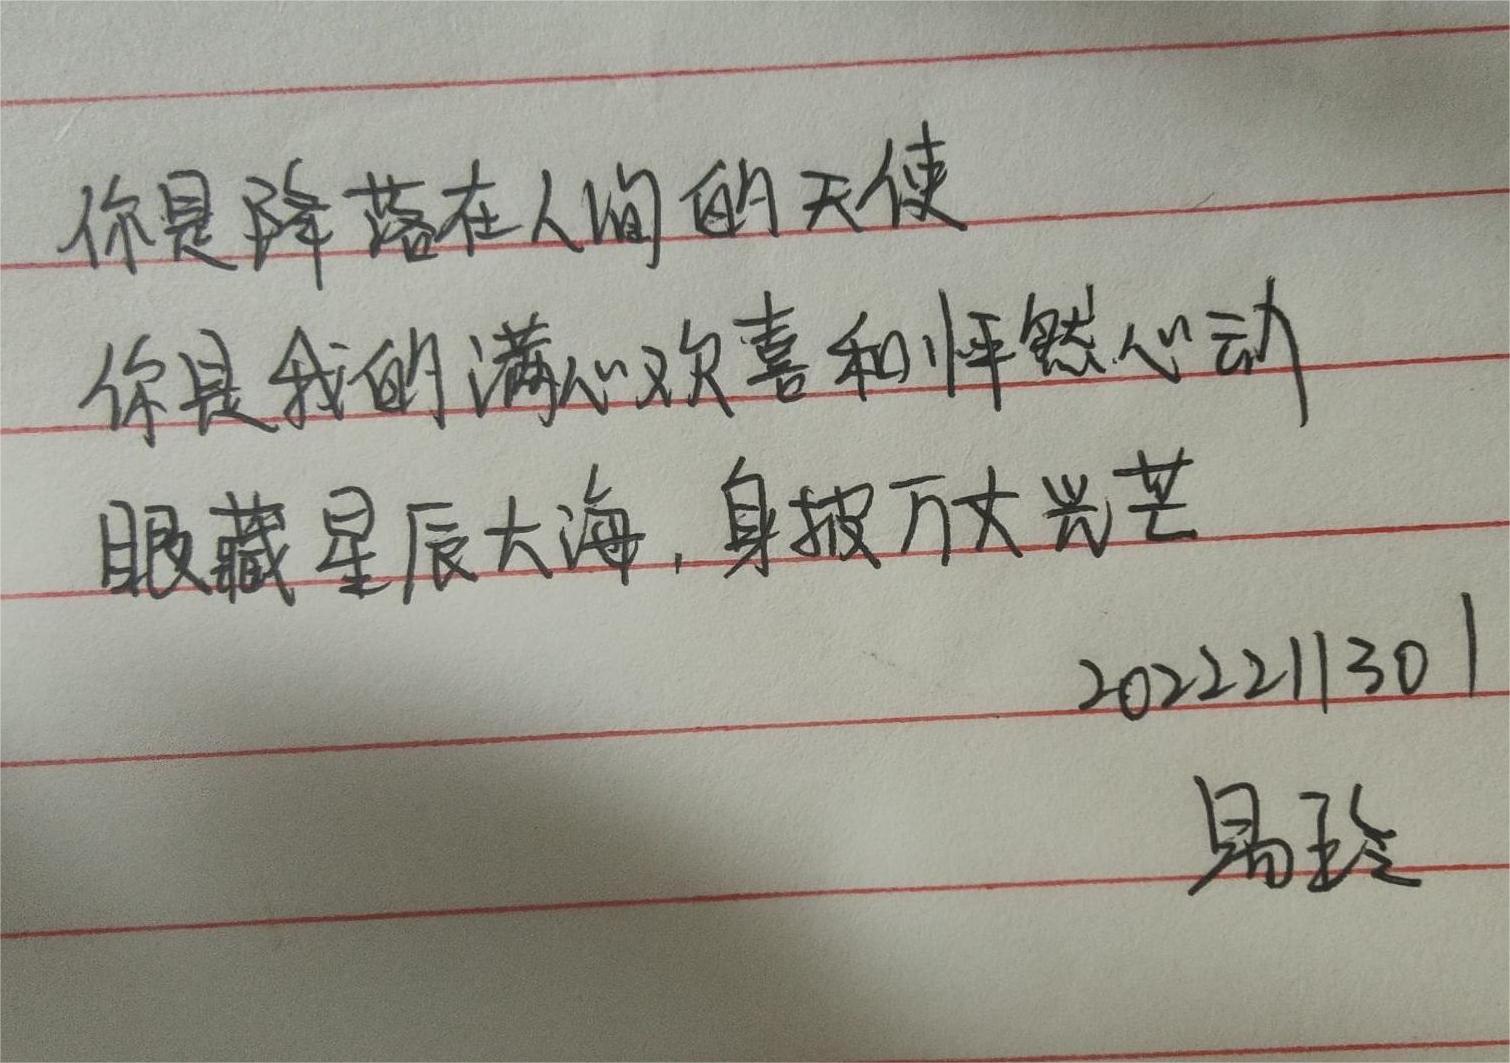 你是降落在人间的天使
你是我的满心欢喜和怦然心动
眼藏星辰大海,身披万丈光芒
2022211301
易玲